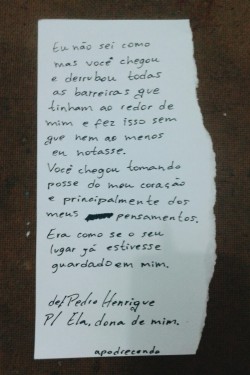 Eu não sei como
mas você chegou
e derrubou todas
as barreiras que
tinham ao redor de
mim e fez isso sem
que nem ao menos
eu notasse.
Você chegou tomando
posse do meu coração
e principalmente dos
meus pensamentos.
Era como se o seu
lugar já estivesse
guardado em mim.
de/ Pedro Henrique
P/ Ela, dona de mim.
apodrecendo